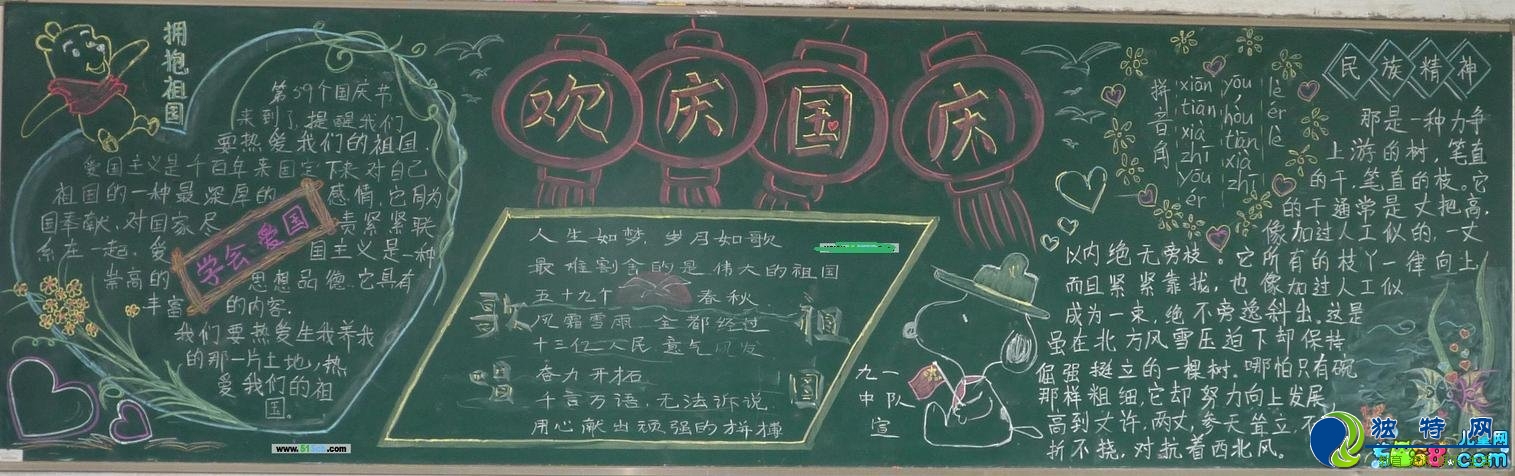 拥抱祖国
第59个国庆节
来到了,提醒我们
要热爱我们的祖国.
爱国主义是千百年来固定下来对自己
祖国的一种最深厚的感情,它同为
国奉献,对国家尽责紧紧联
系在一起,爱国主义是一种
崇高的思想品德.它具有
丰富的内容.
学会爱国
我们要热爱生我养我
的那一片土地,热
爱我们的祖
国。
www.51
.com
欢庆国庆
人生如梦,岁月如歌
最难割舍的是伟大的祖国
五十九个春秋
风霜雪雨 全都经过
十三亿人民 意气风发
奋力开拓
千言万语,无法诉说
用心献出顽强的拼搏
歌
唱
祖
国
九一
中队
宣
拼音角
xiān yōu lè
tiān hòu ér
xià tiān lè
zhī xià
yōu zhī
ér
民族精神
那是一种力争
上游的树,笔直
的干,笔直的枝。它
的干通常是丈把高,
像加过人工似的,一丈
以内绝无旁枝。它所有的枝丫一律向上
而且紧紧靠拢,也像加过人工似
成为一束,绝不旁逸斜出。这是
虽在北方风雪压迫下却保持
倔强挺立的一棵树.哪怕只有碗
那样粗细,它却努力向上发展,
高到丈许,两丈,参天耸立,不
折不挠,对抗着西北风。
独特网
儿童网
.com